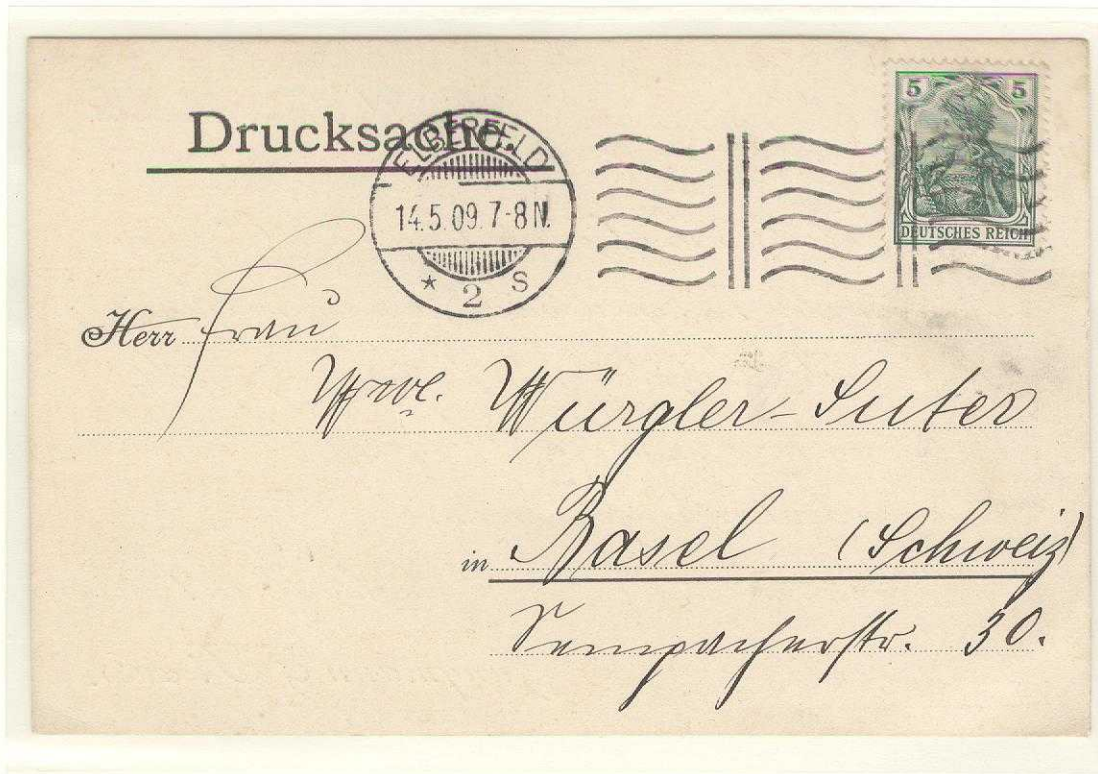 5 5
Drucksache.
ELBERFELD
14.5.09.7-8N.
* 2 S
DEUTSCHES REICH
Herr Frau
Wwe. Würgler-Suter
in Basel (Schweiz)
Sempacherstr. 30.